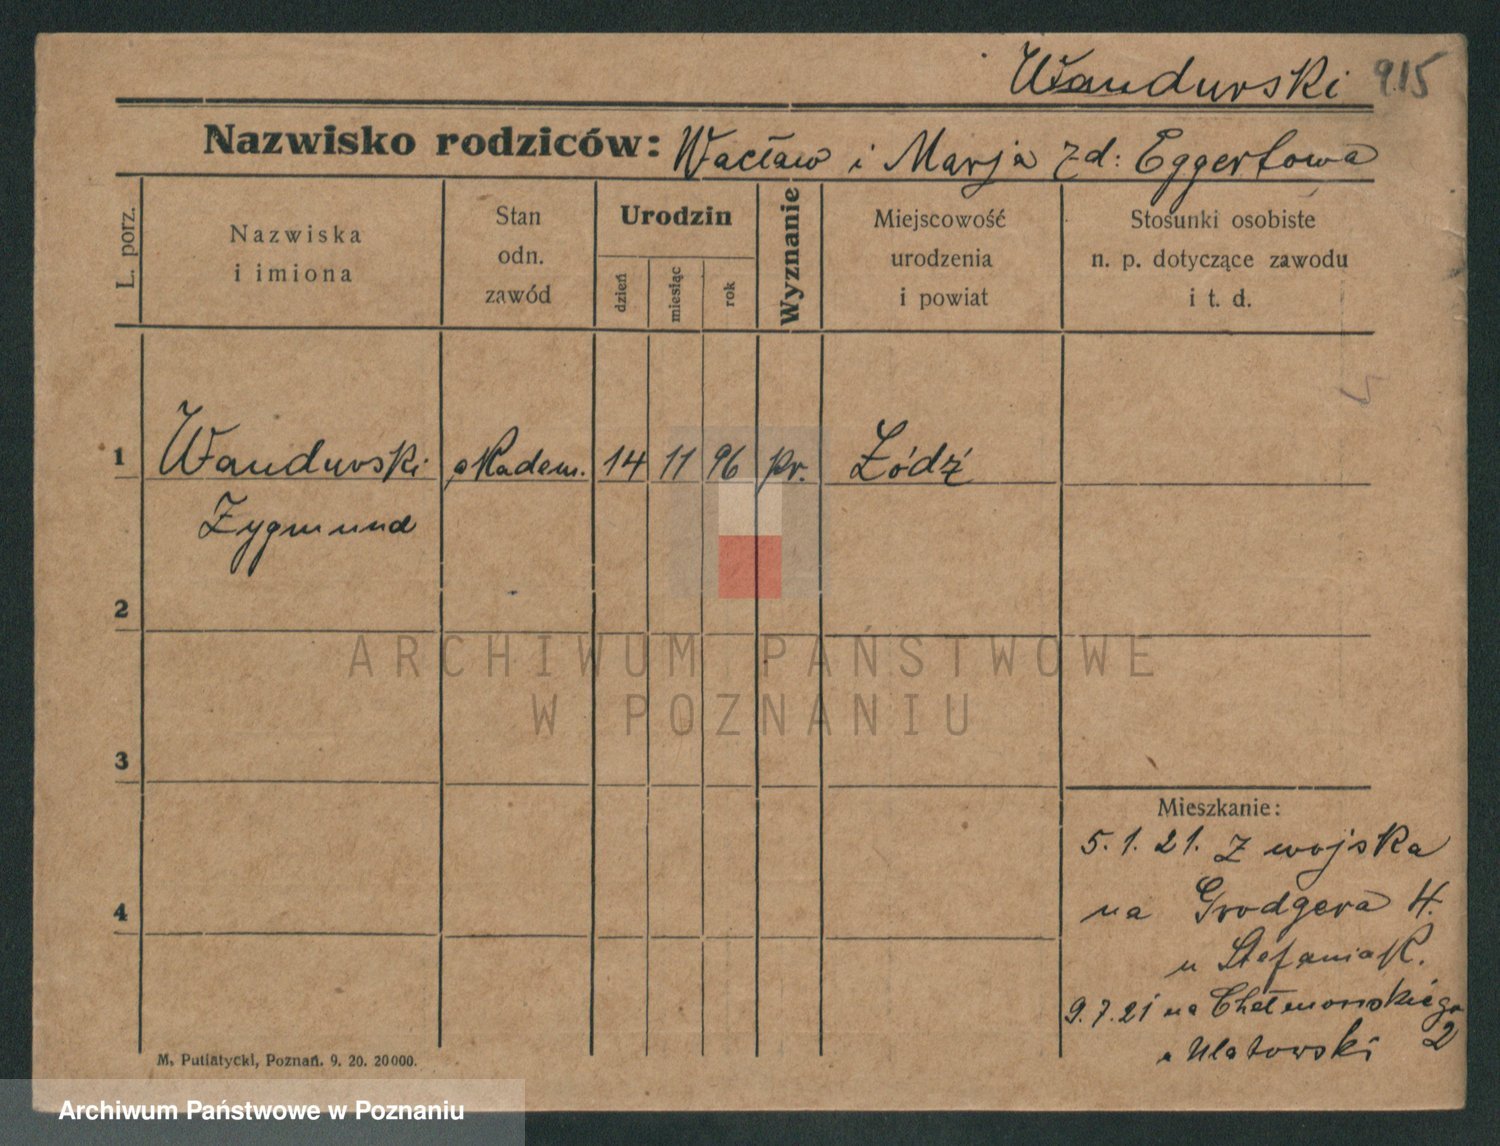 Wandurski 915
Nazwisko rodziców: Wacław i Marja zd: Eggertowa
L. porz.
Nazwiska
i imiona
Stan
odn.
zawód
Urodzin
dzień
miesiąc
rok
Wyznanie
Miejscowość
urodzenia
i powiat
Stosunki osobiste
n. p. dotyczące zawodu
i t. d.
1 Wandurski akadem. 14 11 96 pr. Łódź
Zygmund
2
3
4
Mieszkanie:
5.1.21. Z wojska
na Grodgera 4.
u Stefaniak.
9.7.21 na Chełmońskiego
2
u Ulatowski
M. Putiatycki, Poznań. 9. 20. 20000.
ARCHIWUM PAŃSTWOWE
W POZNANIU
Archiwum Państwowe w Poznaniu